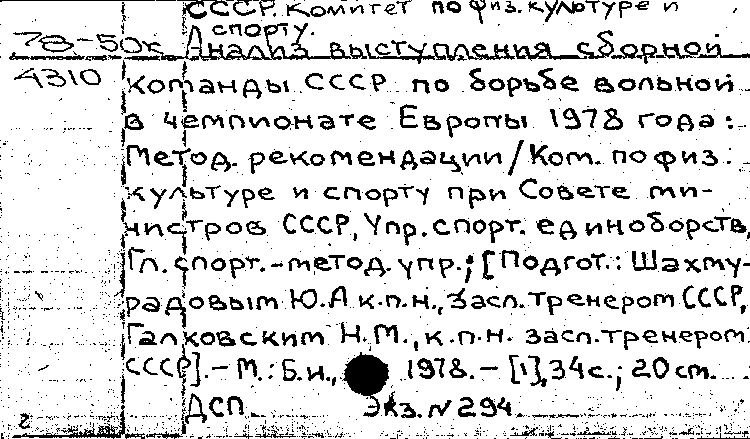 СССР. Комитет по физ. культуре и
спорту.
78-50к Анализ выступления сборной
4310 команды СССР по борьбе вольной
в чемпионате Европы 1978 года:
Метод. рекомендации/Ком. по физ.
культуре и спорту при Совете ми-
нистров СССР, Упр. спорт. единоборств,
Гл. спорт.-метод. упр.; [Подгот.: Шахму-
радовым Ю.А к.п.н., Засл. тренером СССР,
Галковским Н.М., к.п.н. засл. тренером
СССР].- М.: Б.и., 1978.- [1], 34с.; 20 cm.
ДСП. Экз. N 294.
2